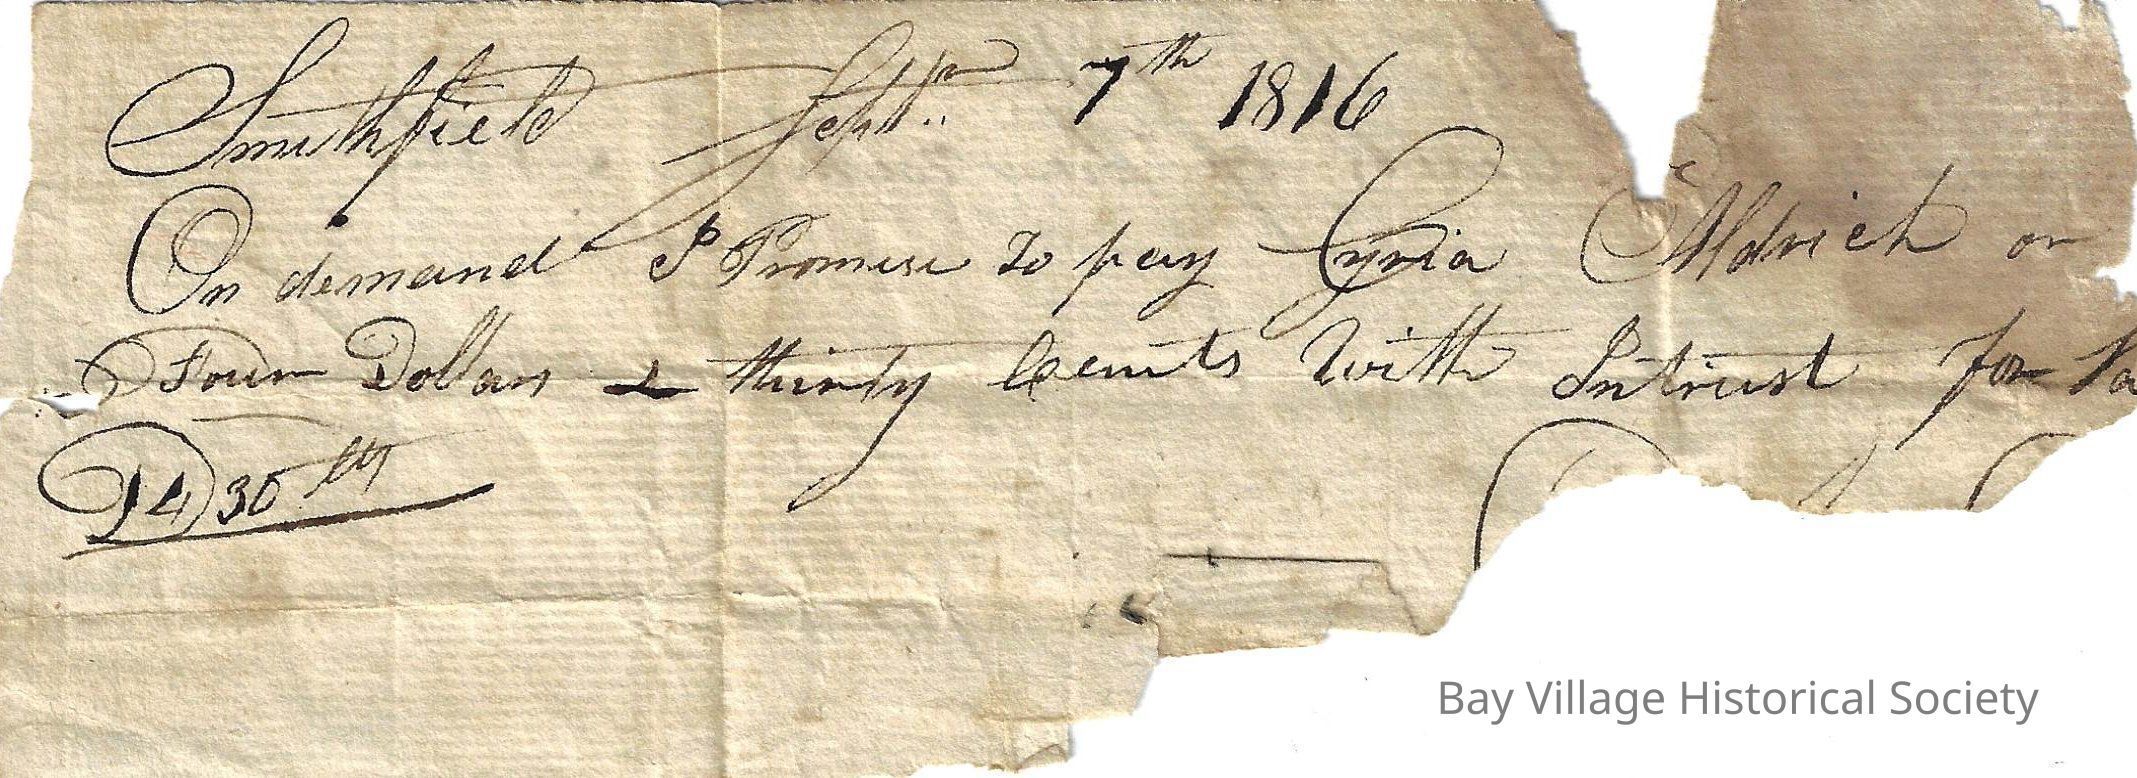 Smithfield Sept.r 7th 1816
On demand I Promise to pay Cyria Aldrich or
Four Dollars & thirty Cents With Intrust for Va
D4)30 cts
Bay Village Historical Society